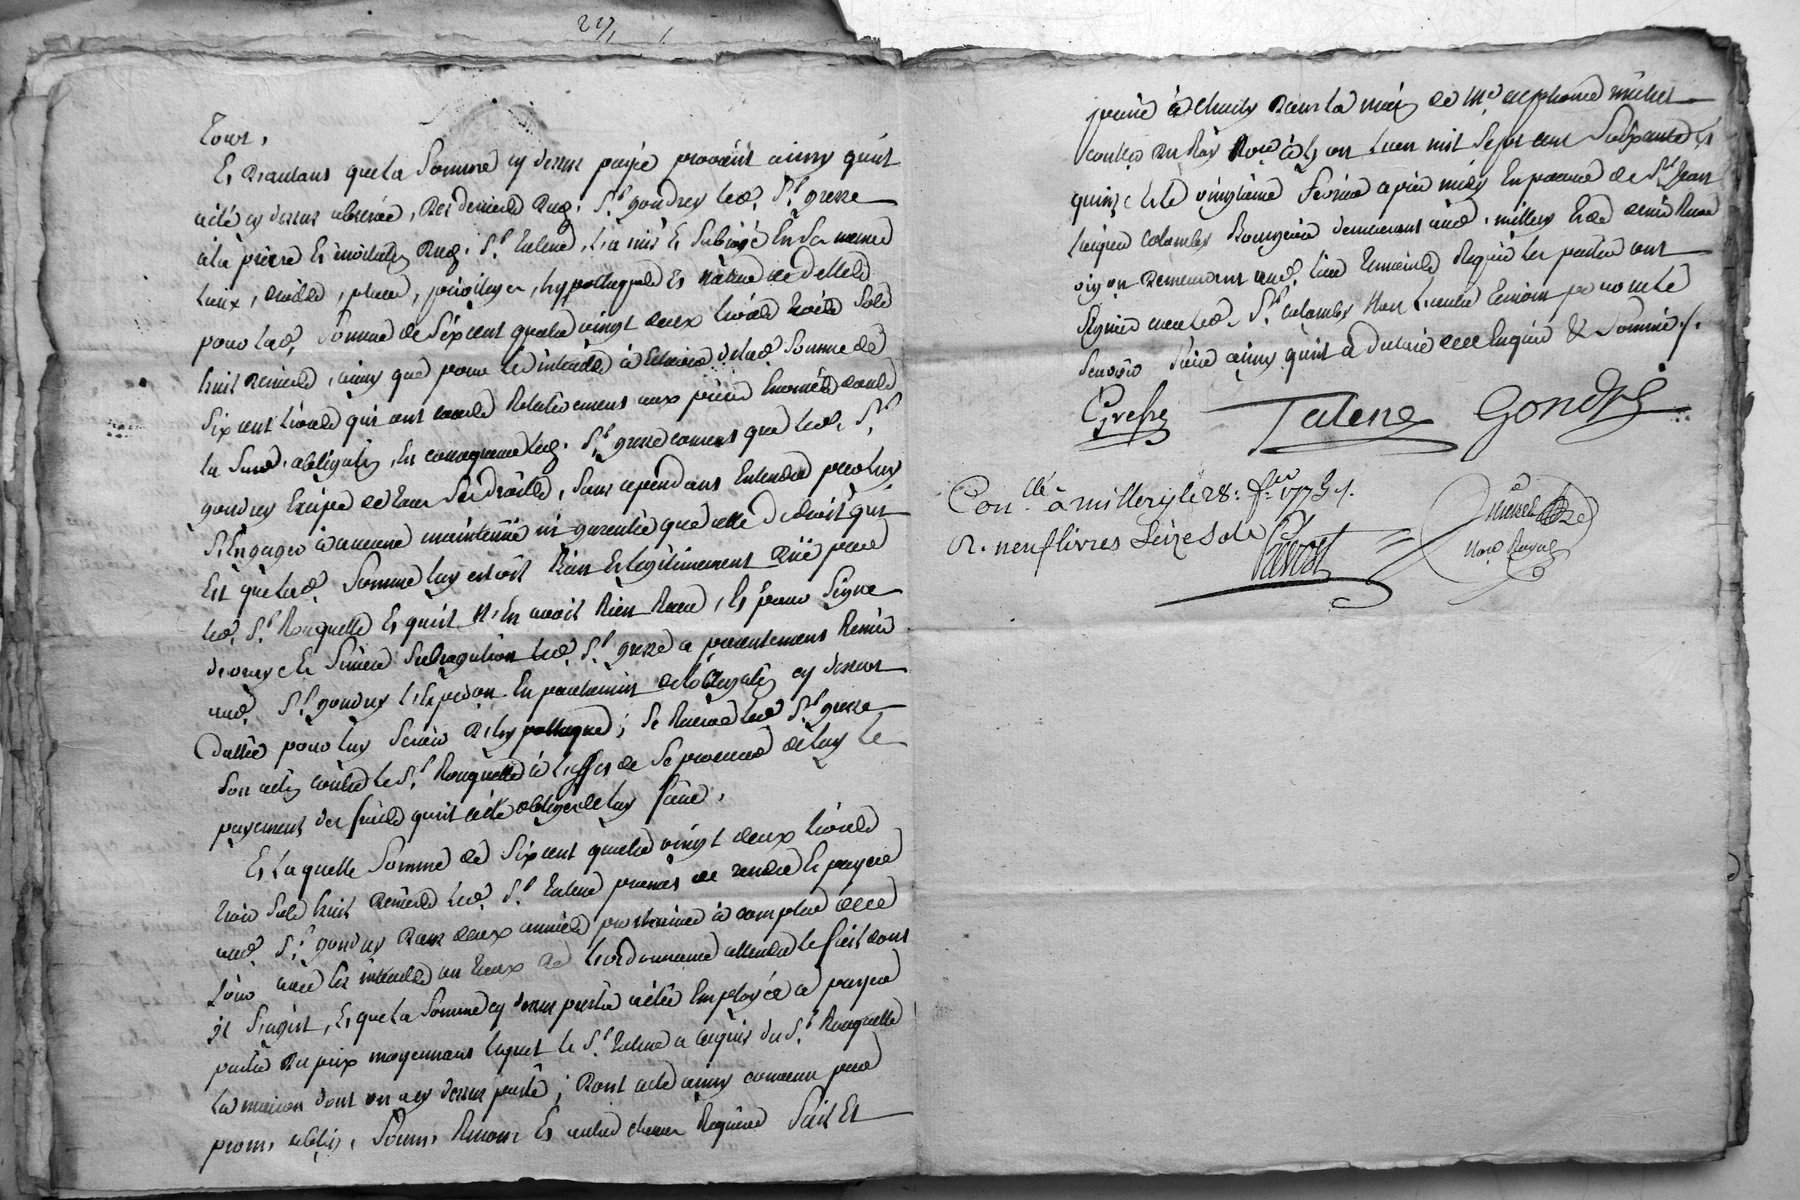 Tour,
Et d'autant que la Somme cy dessus payée provient ainsy qu'il
a été cy dessus observé, des deniers dud. Sr. gondry led. Sr. gresse
à la prière et invitation dud. Sr. talene, l'a mis et subrogé en Sa même
Lieux, droits, place, privileges, hypotheques et nature de dettes
pour lad. Somme de Six cent quatre vingt deux livres trois Sols
huit deniers, ainsy que pour les intérêts à échoir de lad. Somme de
Six cent livres qui ont cours Relativement aux prises énoncés dans
la Susd. obligation, en consequence led. Sr. gresse consent que led. Sr.
gondry Excipe de tous Ses droits, Sans cependant Entendre par luy
S'Engager à aucune maintenüe ni garentie que celle de droit qui
Est que lad. Somme luy estoit bien et légitimement düe par
led. Sr. Rouquette et qu'il N'En avoit Rien Reçu, et pour Signe
de vraye et Sincère Subrogation led. Sr. gresse a présentement Remis
aud. Sr. gondry l'Expédon. En parchemin de l'obligation cy dessus
dattée pour luy Servir d'hypotheque; Se Reserve led. Sr. gresse
Son action contre le Sr. Rouquette à l'effet de Se procurer de luy le
payement des frais qu'il a été obligé de luy faire,
Et laquelle Somme de Six cent quatre vingt deux livres
trois Sols huit deniers led. Sr. talene promet de rendre et payer
aud. Sr. gondry dans deux années prochaines à compter de ce
jour avec les intérêts au taux de l'ordonnance attendu le fait dont
il s'agist, Et que la Somme cy dessus prêtée a été Employée à payer
partie du prix moyennant lequel le Sr. talene a acquis du Sr. Rouquette
la maison dont on a cy dessus parlé; dont acte ainsy convenu par
prom. oblig. Soum. Renonc. et autres clauses Requises fait Et
passé à Charly dans la maison de Me. michel
 du Roy Nore. à Lyon L'an mil Sept cent Soixante et
quinze et le vingtième fevrier après midy En présence de Sr. Jean
 Colomby Bourgeois demeurant aud. millery et de 
 demeurant aud. lieu témoins Requis les parties ont
Signé avec led. Sr. Colomby Non l'autre témoin pour ne le
Savoir faire ainsy qu'il a déclaré de ce Enquis & Sommé ./.
Gresse Talene Gondry
Con.llé à millery le 28: f.ier 1775 ./.
R. neuf livres Seize Sols
Prevost
michel
Nore Royal